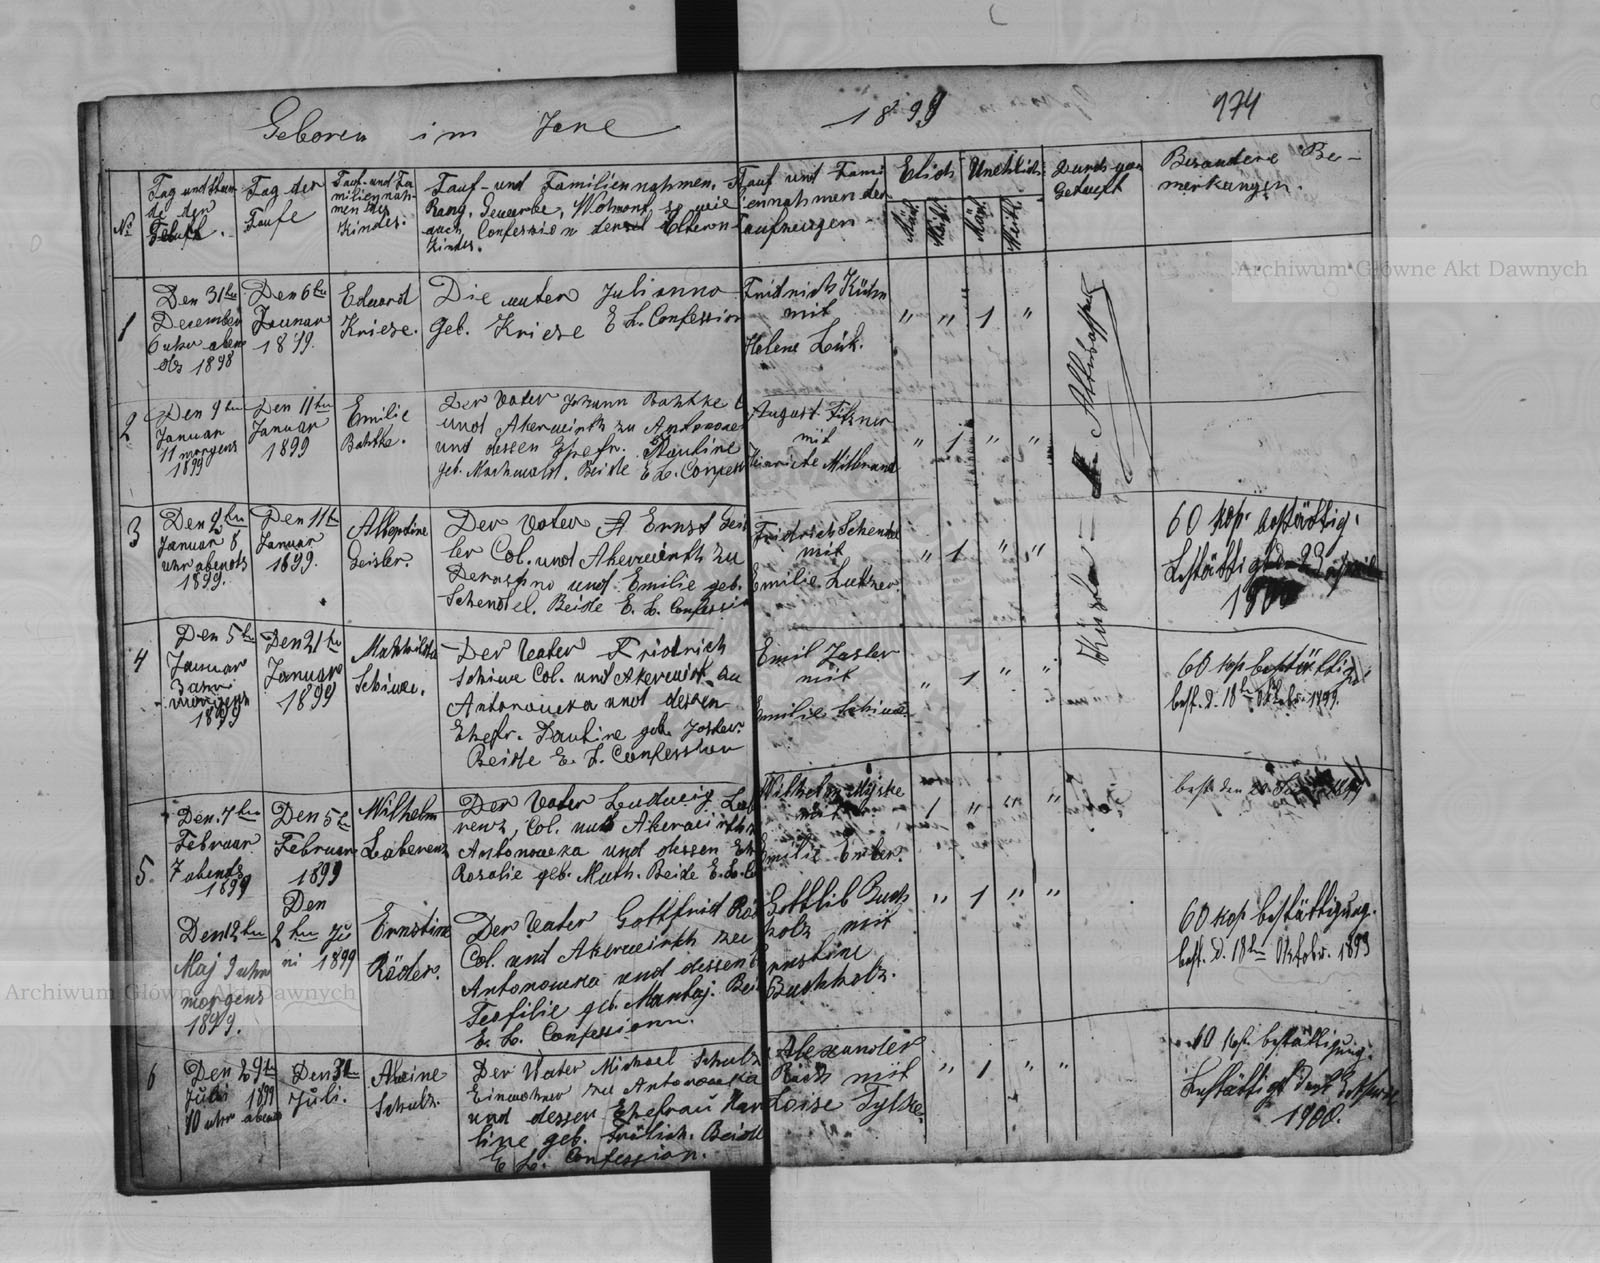 Geboren im Jare 1899 974
No
Tag und Stun
de der
Geburt.
Tag der
Taufe
Tauf- und Fa
miliennah-
men des
Kindes.
Tauf- und Familiennahmen,
Rang, Gewerbe, Wohnort so wie
auch Confession der Eltern
Kindes.
Tauf und Fami
iennahmen der
Taufzeugen
Elich
Unehlich
Män.
Weib.
Män.
Weib.
Durch wen
Getauft
Besondere Be-
merkungen.
1
Den 31ten
Desember
6 uhr aben
ds 1898
Den 6ten
Januar
1899.
Eduard
Kriese.
Die muter Julianna
geb. Kriese E L. Confession
Fridrich Kühn
mit
Helene Lük.
" " 1 "
2
Den 9ten
Januar
11 morgens
1899
Den 11ten
Januar
1899
Emilie
Bahtke.
Der Vater Johann Bahtke
und Akerwirth zu
und dessen Ehefr. Pauline
geb. Beide E L. Confess
August Fitzner
mit
Milbrand
" 1 " "
3
Den 9ten
Januar 8
uhr abends
1899.
Den 11t
Januar
1899.
Albertine
Geisler.
Der Vater A Ernst Geis
ler Col. und Akerwirth zu
und Emilie geb.
Schendel. Beide E. L. Confessio
Fridrich Schendel
mit
Emilie
" 1 " "
60 kop. bestättig.
Bestättigt
1900
4
Den 5ten
Januar
morgens
1899
Den 21ten
Januar
1899
Mathilda
Schiwe.
Der Vater Fridrich
Schiwe Col. und Akerwirt zu
Antonowka und dessen
Ehefr. Pauline geb. Jesker.
Beide E. L. Confession
Emil
mit
Emilie Schiwe
" 1 " "
60 kop bestättig.
best. d. 18ten Oktobr. 1899.
5
Den 7ten
Februar
7 abends
1899
Den 5ten
Februar
1899
Wilhelm
Laberenz
Der Vater Ludwig Lab
renz, Col. und Akerwirth
Antonowka und dessen Eh
Rosalie geb. Muth. Beide E. L.
Wilhelm
mit
Emilie
1 " " "
best. den
Den 12ten
Maj 9 uhr
morgens
1899.
Den
2ten Ju
ni 1899
Ernstine
Räder.
Der Vater Gottfrid Räd
Col. und Akerwirth zu
Antonowka und dessen
Teofilie geb. Mantaj. Bei
E. L. Confessionn.
Gottlib Buch
holz mit
rnstine
Buchholz.
" 1 " "
60 kop bestättigung.
best. d. 18ten Oktobr. 1899
6
Den 29ten
Juli 1899
10 uhr abens
Juli.
Alwine
Schulz.
Der Vater Michael Schulz
Einwohner zu Antonowka
und dessen Ehefrau Karo
line geb. Frölich. Beide
E L. Confession.
Alexander
mit
Loise Tylske
" 1 " "
60 kop. bestättigung.
Bestättigt
1900.
Küster
Archiwum Główne Akt Dawnych
Archiwum Główne Akt Dawnych